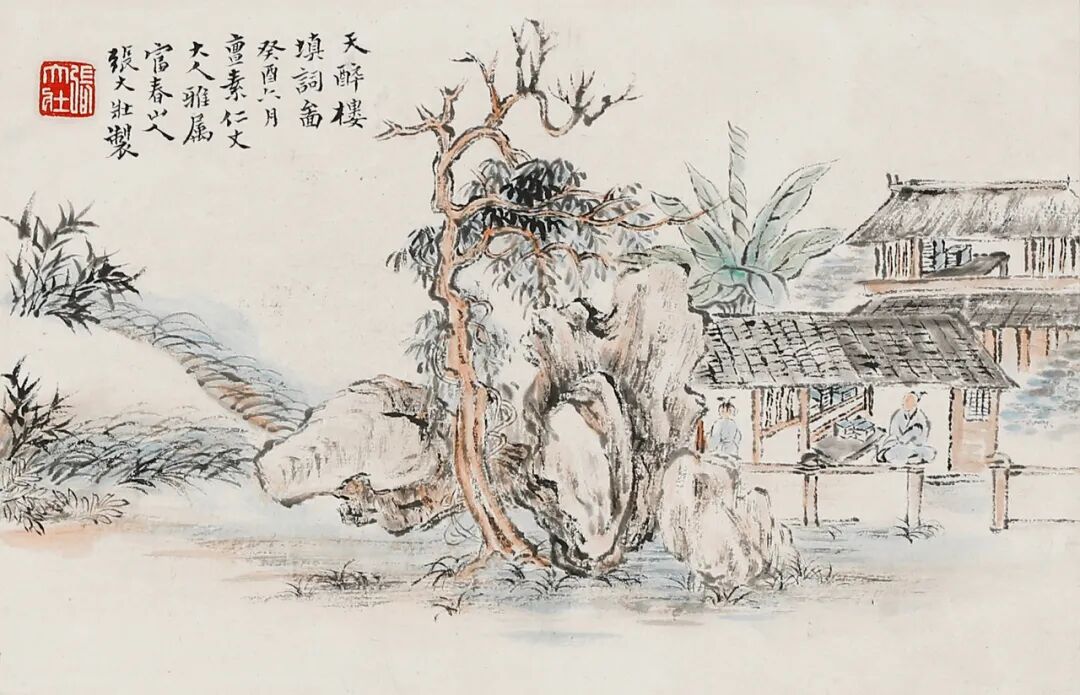 天醉樓
填詞啚
癸酉六月
亶素仁丈
大人雅属
富春山人
張大壯製
張大壯